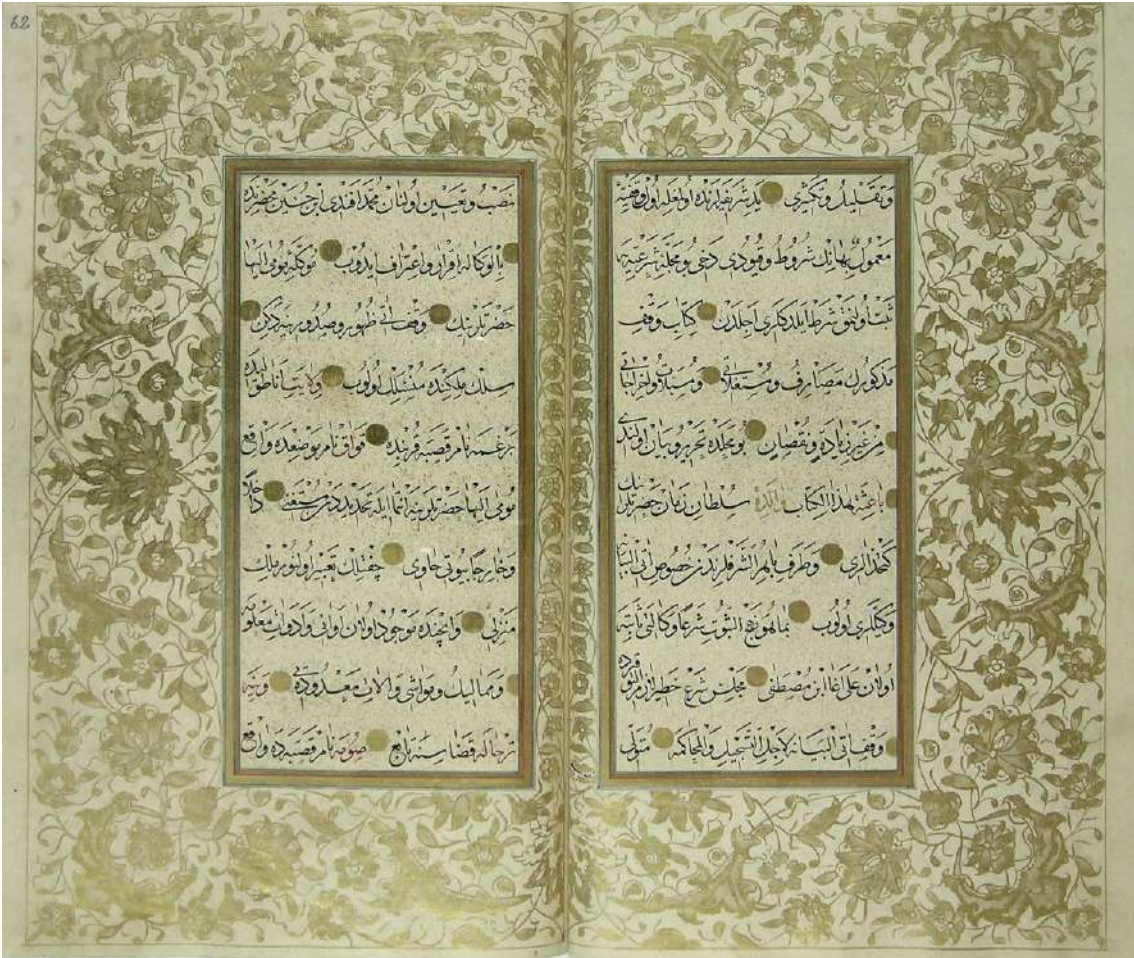 وتقليد وتكثيرى يد شريفه لرنده اولمغله اول وقفيه
معمول بهانك شروط وقيودى دخى بو مجله شرعيه يه
ثبت اولنمق شرط ايلدكلرى اجلدن كتاب وقف
مذكورك مصارف ومستغلاتى ومسبلات واخراجاتى
من غير زيادة ونقصان بو محلده تحرير وبيان اولندى
باعثة لهذا الكتاب والده سلطان زمان حضرتلرينك
كتخدالرى وطرف باهر الشرفلرندن خصوص اتى البيانه
وكيللرى اولوب بما هو نهج الثبوت شرعا وكالتى ثابته
اولان على اغا ابن مصطفى مجلس شرع خطير
وقف اتى البيانه لاجل التسجيل والمحاكمه متولى
نصب وتعيين اولنان محمد افندى ابن حسين محضرنده
بالوكاله اقرار واعتراف ايدوب موكله مومى اليها
حضرتلرينك وقف اتى ظهور وصدورينه دكن
سلك ملكنده منسلك اولوب ولايت اناطوليده
برغمه نام قصبه قربنده قواق نام موضعده واقع
مومى اليها حضرتلرينه انتما ايله تحديددن مستغنى داخلا
وخارجا بيوتى حاوى چفتلك تعبير اولنور ملك
منزلى وايچنده موجود اولان اوانى وادوات معلومه
ومماليك ومواشى والات معدوده وينه
ترحاله قضاسنه تابع صومه نام قصبه ده واقع
62